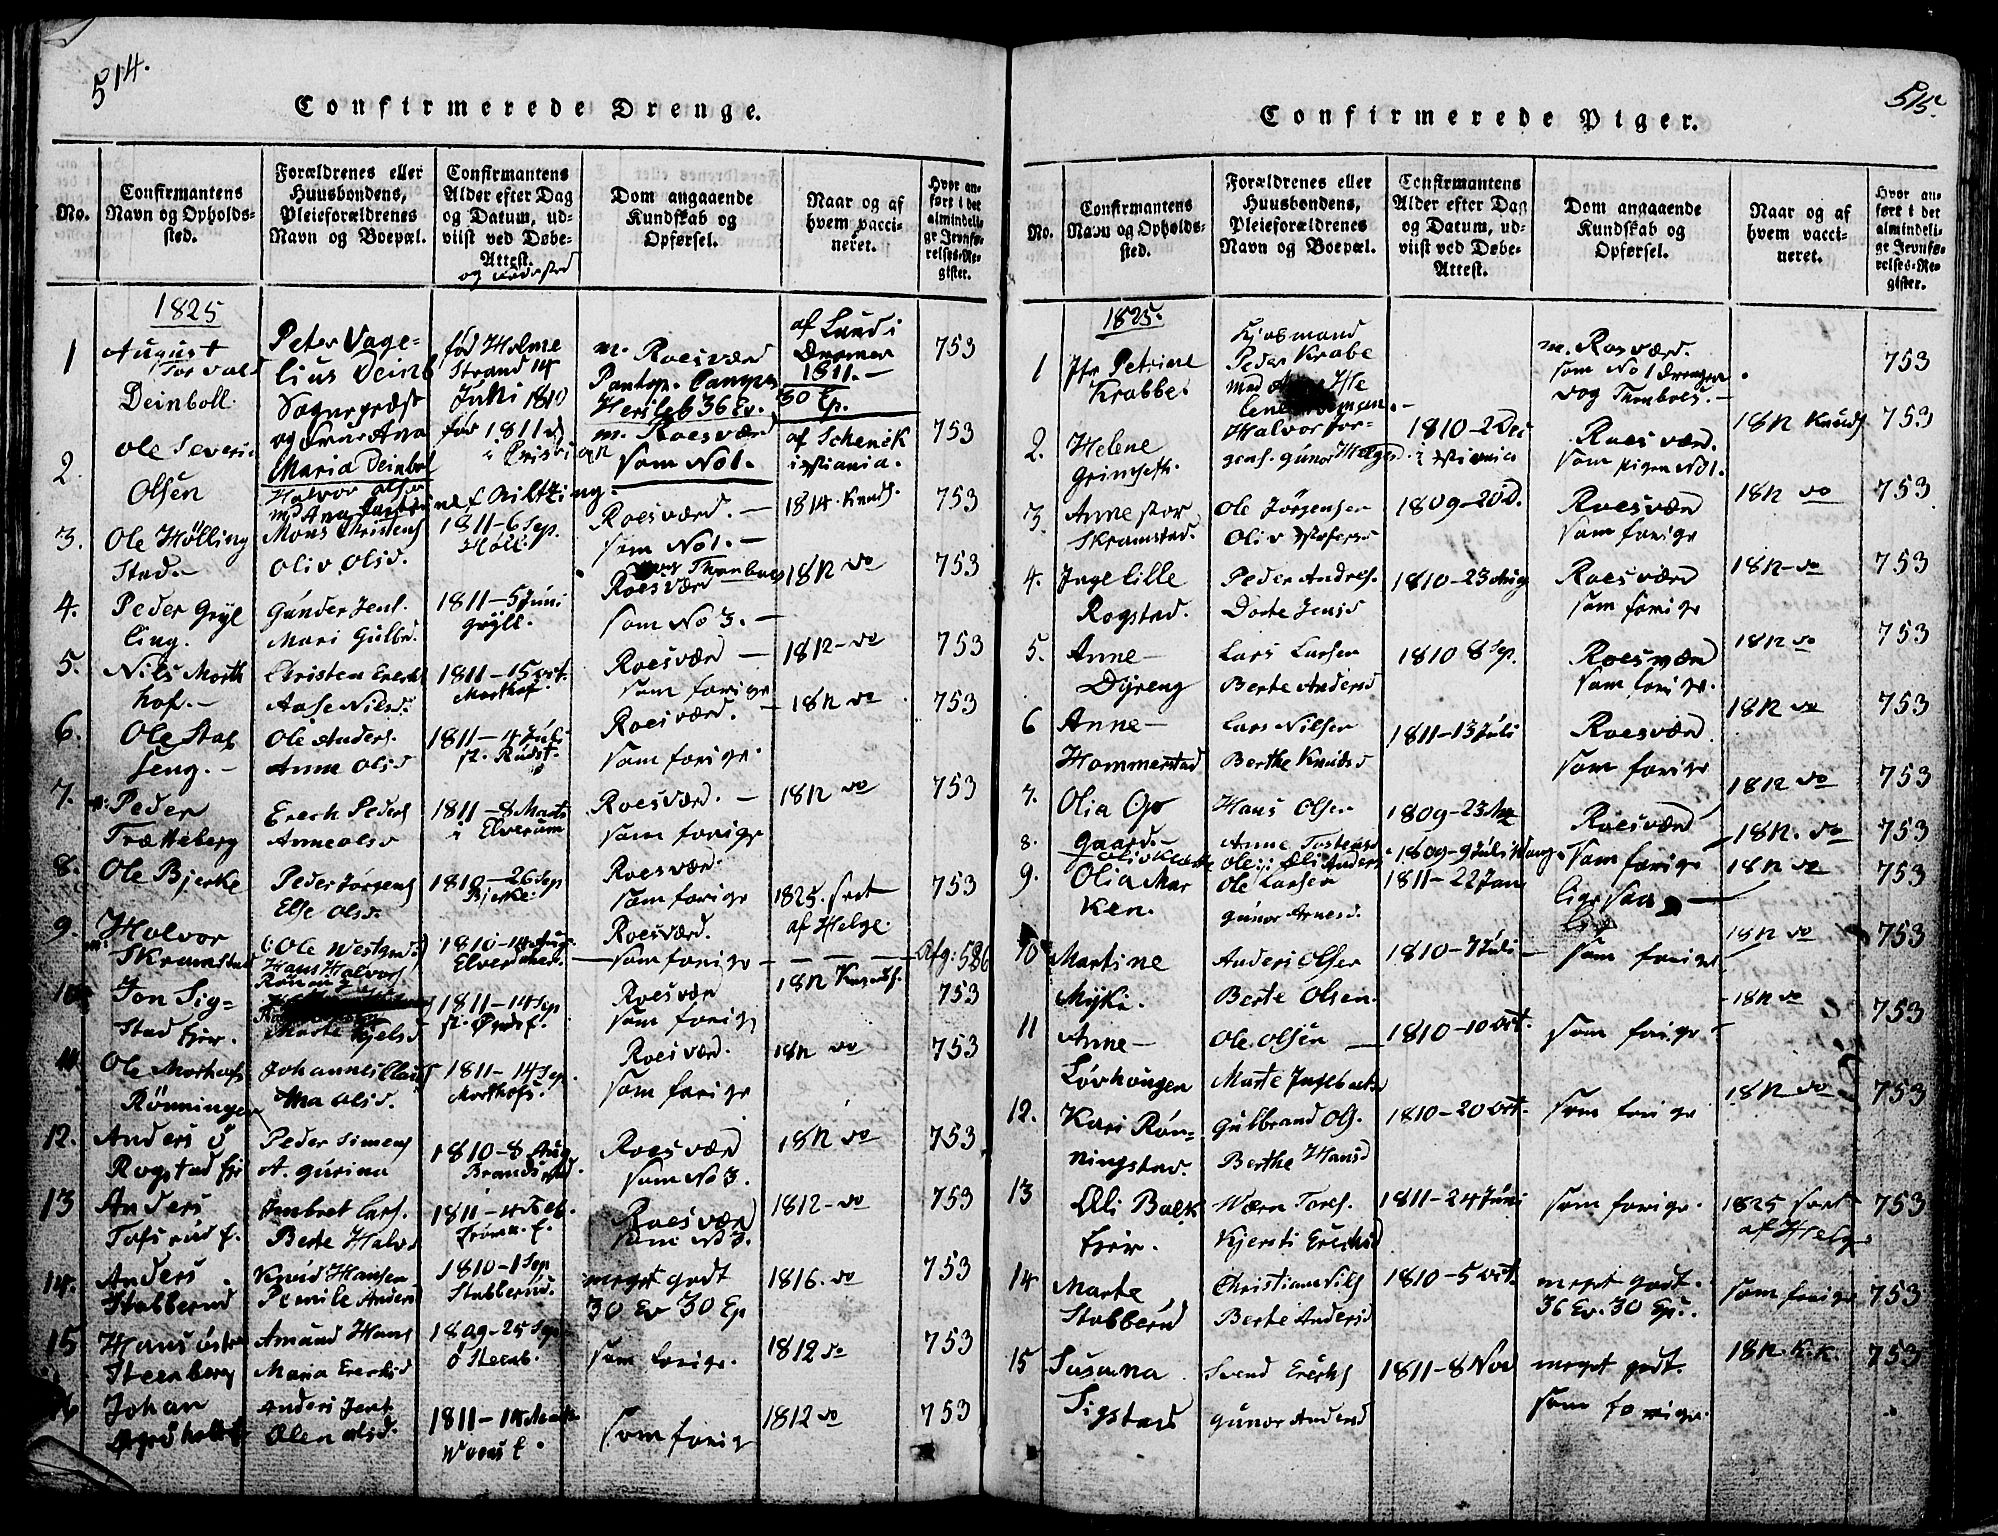 514.
Confirmerede Drenge.
No.
Confirmantens
Navn og Opholds-
sted.
Forældrenes eller
Huusbondens,
Pleieforældrenes
Navn og Boepæl.
Confirmantens
Alder efter Dag
og Datum, ud-
viist ved Døbe-
Attest.
og Fødested
Dom angaaende
Kundskab og
Opførsel.
Naar og af
hvem vacci-
neret.
Hvor an-
ført i det
almindeli-
ge Jevnfø-
relses-Re-
gister.
1825
1
August
Deinboll.
Peter Vage-
lius Deinb
Sognepræst
og Frue Ana
Maria Deinbol
fød Holme
Strand 14
Juni 1810
m. Roesværd
Herslebs 36 Ev.
af Lund i
Drammen
1811.-
753
2.
Ole Severin
Olsen
Halvor Olsen
før 1811 d
m. Roesværd
som No 1.
af Schenck
istiania.
753
3.
Ole Hölling
Stad.-
Mons Christens
Oliv Olsd.
1811-6 Sep.
Höll.
Roesværd. -
som No 1. -
1814. Knuds.
753
4.
Peder Gryl
ling.
Gunder Jens.
Mari Gulbd.
1811-5 Juni
Gryll.
Roesværd
som No 3. -
1812 do
753
5.
Nils Morth
hof.-
Christen Erechs
Aase Nilsd.
1811-15 oct.
Morthof.
Roesværd -
som forige
1812-do
753
6.
Ole Staf
seng.-
Ole Anders.
Anne Olsd
1811-4 Juli
Roesværd. -
som forige.
1812 do
753
7.
Peder
Trætteberg
Erech Peders
Anne Olsd
1811-8 Marts
i Elverum
Roesværd. -
som forige
1812 do
753
8.
Ole Bjerke
Peder Jörgens
Else Olsd.
1810-26 Sep
Bjerke.
Roesværd.
som forige
1825. sret
af Helge.
753
9.
Halvor
Skramstad
Ole Westgrd.
Hans Halvors
1810-14 Aug.
Roesværd.
som forige
Afg: 586
10
Jon Sig-
Stad Ejer.
Marte Kjelsd
1811-14 Sep
Roesværd
som forige
1812 Knuds.
753
11.
Ole Morhofs
Rönningen
Johannes Claus
Ana Olsd.
1811-14 Sep.
Morthofs.
Roesværd.
som forige
1812 do
753
12.
Anders ö
Rogstad Ejr
Peder Simens
A. Gurina
1810-8 Aug
Brandstad.
Roesværd
som No 3.
1812 do
753
13
Anders
Tofsrud E.
Embret Lars.
Berte Halvd
1811-4 Feb.
Roesværd
som No 3.
1812-do
753
14.
Anders
Stubberud
Knud Hansen
Pernile Andersd
1810-1 Sep
Stubberud.
meget godt
30 Ev 30 Ep
1816. do
753
15
Hans östr
Steenberg
Amund Hans
Maria Erechsd
1809-25 Sep
ö Steenb.
som forige.
1812 do
753
16
Johan
Anders Jens
Olen Olsd.
som forige
1812 do
753
515.
Confirmerede Piger.
No.
Confirmantens
Navn og Opholds-
sted.
Forældrenes eller
Huusbondens,
Pleieforældrenes
Navn og Boepæl.
Confirmantens
Alder efter Dag
og Datum, ud-
viist ved Døbe-
Attest.
Dom angaaende
Kundskab og
Opførsel.
Naar og af
hvem vacci-
neret.
Hvor an-
ført i det
almindeli-
ge Jevnfø-
relses-Re-
gister.
1825.
1
Jfr Petrine
Krabbe.
Kjøbmand
Peder Krabe
m. Rosværd.
som No 1 Drengen
753
2.
Helene
Grimseth.
Halvor Jor-
gens.
1810-2 Dec
Roesværd.
som pigen No 1.
1812 Knuds
753
3.
Anne stor
Skramstad.
Ole Jörgensen
1809-20 D.
Roesværd
som forige
1812 do
753
4.
Inge lille
Rogstad.
Peder Andres.
Dorte Jensd
1810-23 Aug
Roesværd
som forige
1812-do
753
5.
Anne-
Dyreng
Lars Larsen
Berte Andersd
1810 8 Sep.
Roesværd
som forige.
1812 do
753
6
Anne-
Hommerstad
Lars Nilsen
Berthe Knudsd
1811-13 Juli
Roesværd
som forige
1812 do
753
7.
Olia Op
Gaard.-
Hans Olsen
Anne Tostensd
1809-23
Roesværd
som forige
1812 do
753
8.
1809-9 Juli
1812. do
753
9.
Olia Mar
Ken.
Ole Larsen
Gunor Arnesd.
1811-22 Jan
ligesaa
1812 do
753
10
Martine
Myki.
Anders Olsen
Berte Olsen.
1810-7 Juli-
som forige.
1812 do
753
11
Anne-
Lövhaugen
Ole Olsen
Marte Ingebretsd
1810-10 oct.
som forige.
1812 do
753
12.
Kari Røn-
ningstad.
Gulbrand Ols.
Berthe Hansd
1810-20 oct.
som forige
1812 do
753
13
Oli Balk
Ejer.
Tores.
Kjersti Erechsd
1811-24 Juni
som forige.
1825 sret
af Helge.
753
14
Marte
Stubberud
Christian Nils
Berte Andersd
1810-5 oct.
meget godt.
36 Ev. 30 Ep.
som forige
753
15
Susanna
Sigstad
Svend Erechs
Gunor Andersd
1811-8 Nov
meget godt.
som forige.
1812. K.K.
753